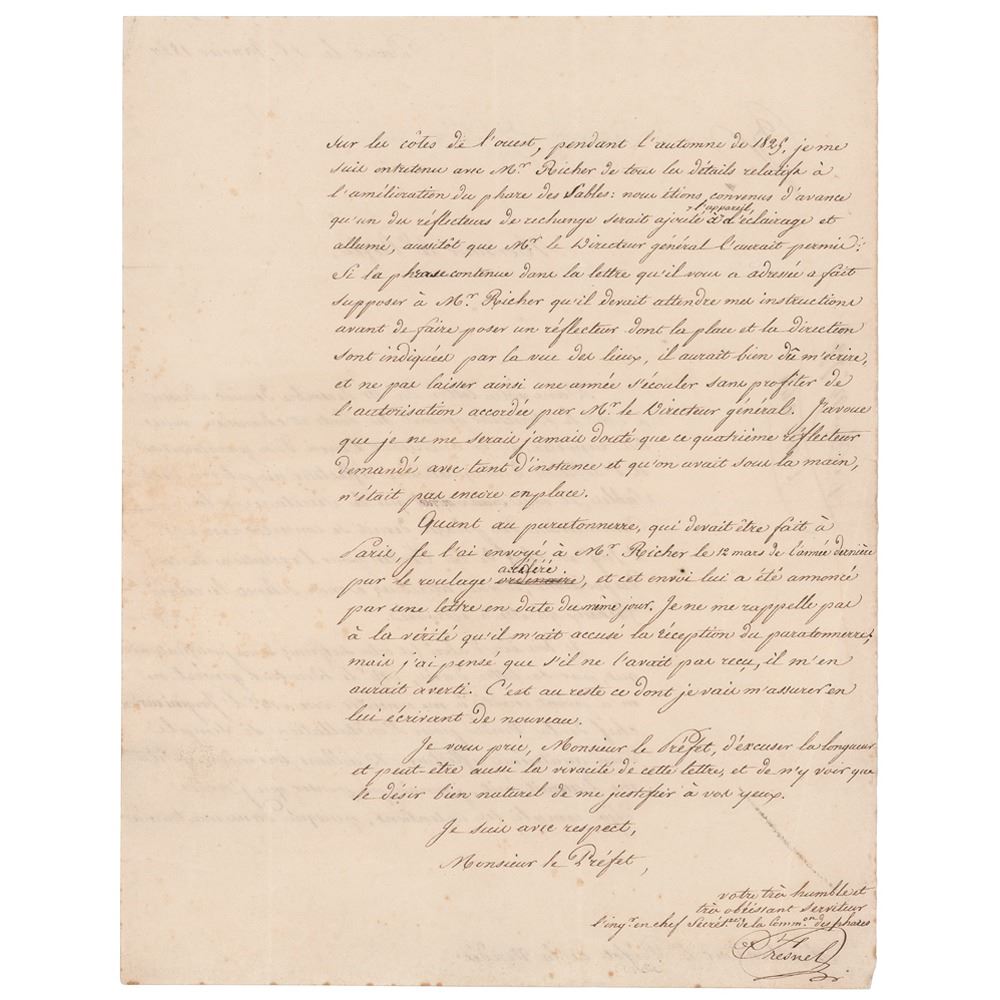 sur les côtes de l'ouest, pendant l'automne de 1825, je me
suis entretenu avec Mr. Richer de tous les détails relatifs à
l'amélioration du phare des Sables: nous étions convenus d'avance
qu'un des réflecteurs de rechange serait ajouté à l'appareil d'éclairage et
allumé, aussitôt que Mr. le Directeur général l'aurait permis.
Si la phrase contenue dans la lettre qu'il vous a adressée a fait
supposer à Mr. Richer qu'il devait attendre mes instructions
avant de faire poser un réflecteur dont la place et la direction
sont indiquées par la vue des lieux, il aurait bien dû m'écrire,
et ne pas laisser ainsi une année s'écouler sans profiter de
l'autorisation accordée par Mr. le Directeur général. J'avoue
que je ne me serais jamais douté que ce quatrième réflecteur
demandé avec tant d'instance et qu'on avait sous la main,
n'était pas encore en place.
Quant au paratonnerre, qui devait être fait à
Paris, je l'ai envoyé à Mr. Richer le 12 mars de l'année dernière
accéléré
par le roulage ordinaire, et cet envoi lui a été annoncé
par une lettre en date du même jour. Je ne me rappelle pas
à la vérité qu'il m'ait accusé la réception du paratonnerre;
mais j'ai pensé que s'il ne l'avait pas reçu, il m'en
aurait averti. C'est au reste ce dont je vais m'assurer en
lui écrivant de nouveau.
Je vous prie, Monsieur le Préfet, d'excuser la longueur
et peut-être aussi la vivacité de cette lettre, et de n'y voir que
le désir bien naturel de me justifier à vos yeux.
Je suis avec respect,
Monsieur le Préfet,
votre très humble et
très obéissant serviteur
l'ingr. en chef Secrétre de la Common des phares
Fresnel